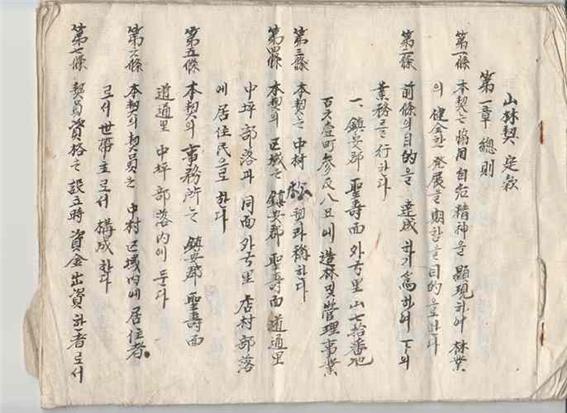 山林契 定款
第一章 總則
第一條 本契는 協同自治精神을 顯現하야 林業
의 健全한 發展을 期함을 目的으로 한다
第二條 前條의 目的을 達成하기 爲하야 下의
業務를 行한다
一、鎭安郡 聖壽面 外弓里 山七拾番地
百 壹町 参反八畝에 造林 및 管理事業
第三條 本契는 中村 松契라 稱한다
第四條 本契의 区域는 鎭安郡 聖壽面 道通里
中坪部落과 同面 外弓里 店村部落
에 居住民으로 한다
第五條 本契의 事務所는 鎭安郡 聖壽面
道通里 中坪部落内에 둔다
第六條 本契의 契員는 中村区域内에 居住者
로서 世帶主로서 構成한다
第七條 契員資格는 設立時 資金出資한 者로서